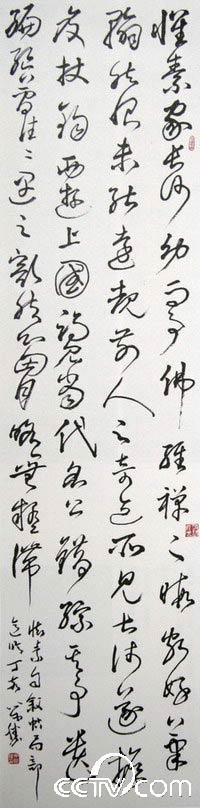 懷素家長沙幼而事佛經禪之暇頗好筆
翰然恨未能遠覩前人之奇迹所見甚淺遂擔
笈杖錫西遊上國謁見當代名公錯綜其事遺
編絕簡往々遇之豁然心胸略無疑滯
臨素自敘帖局部
丁亥
CCTV.com